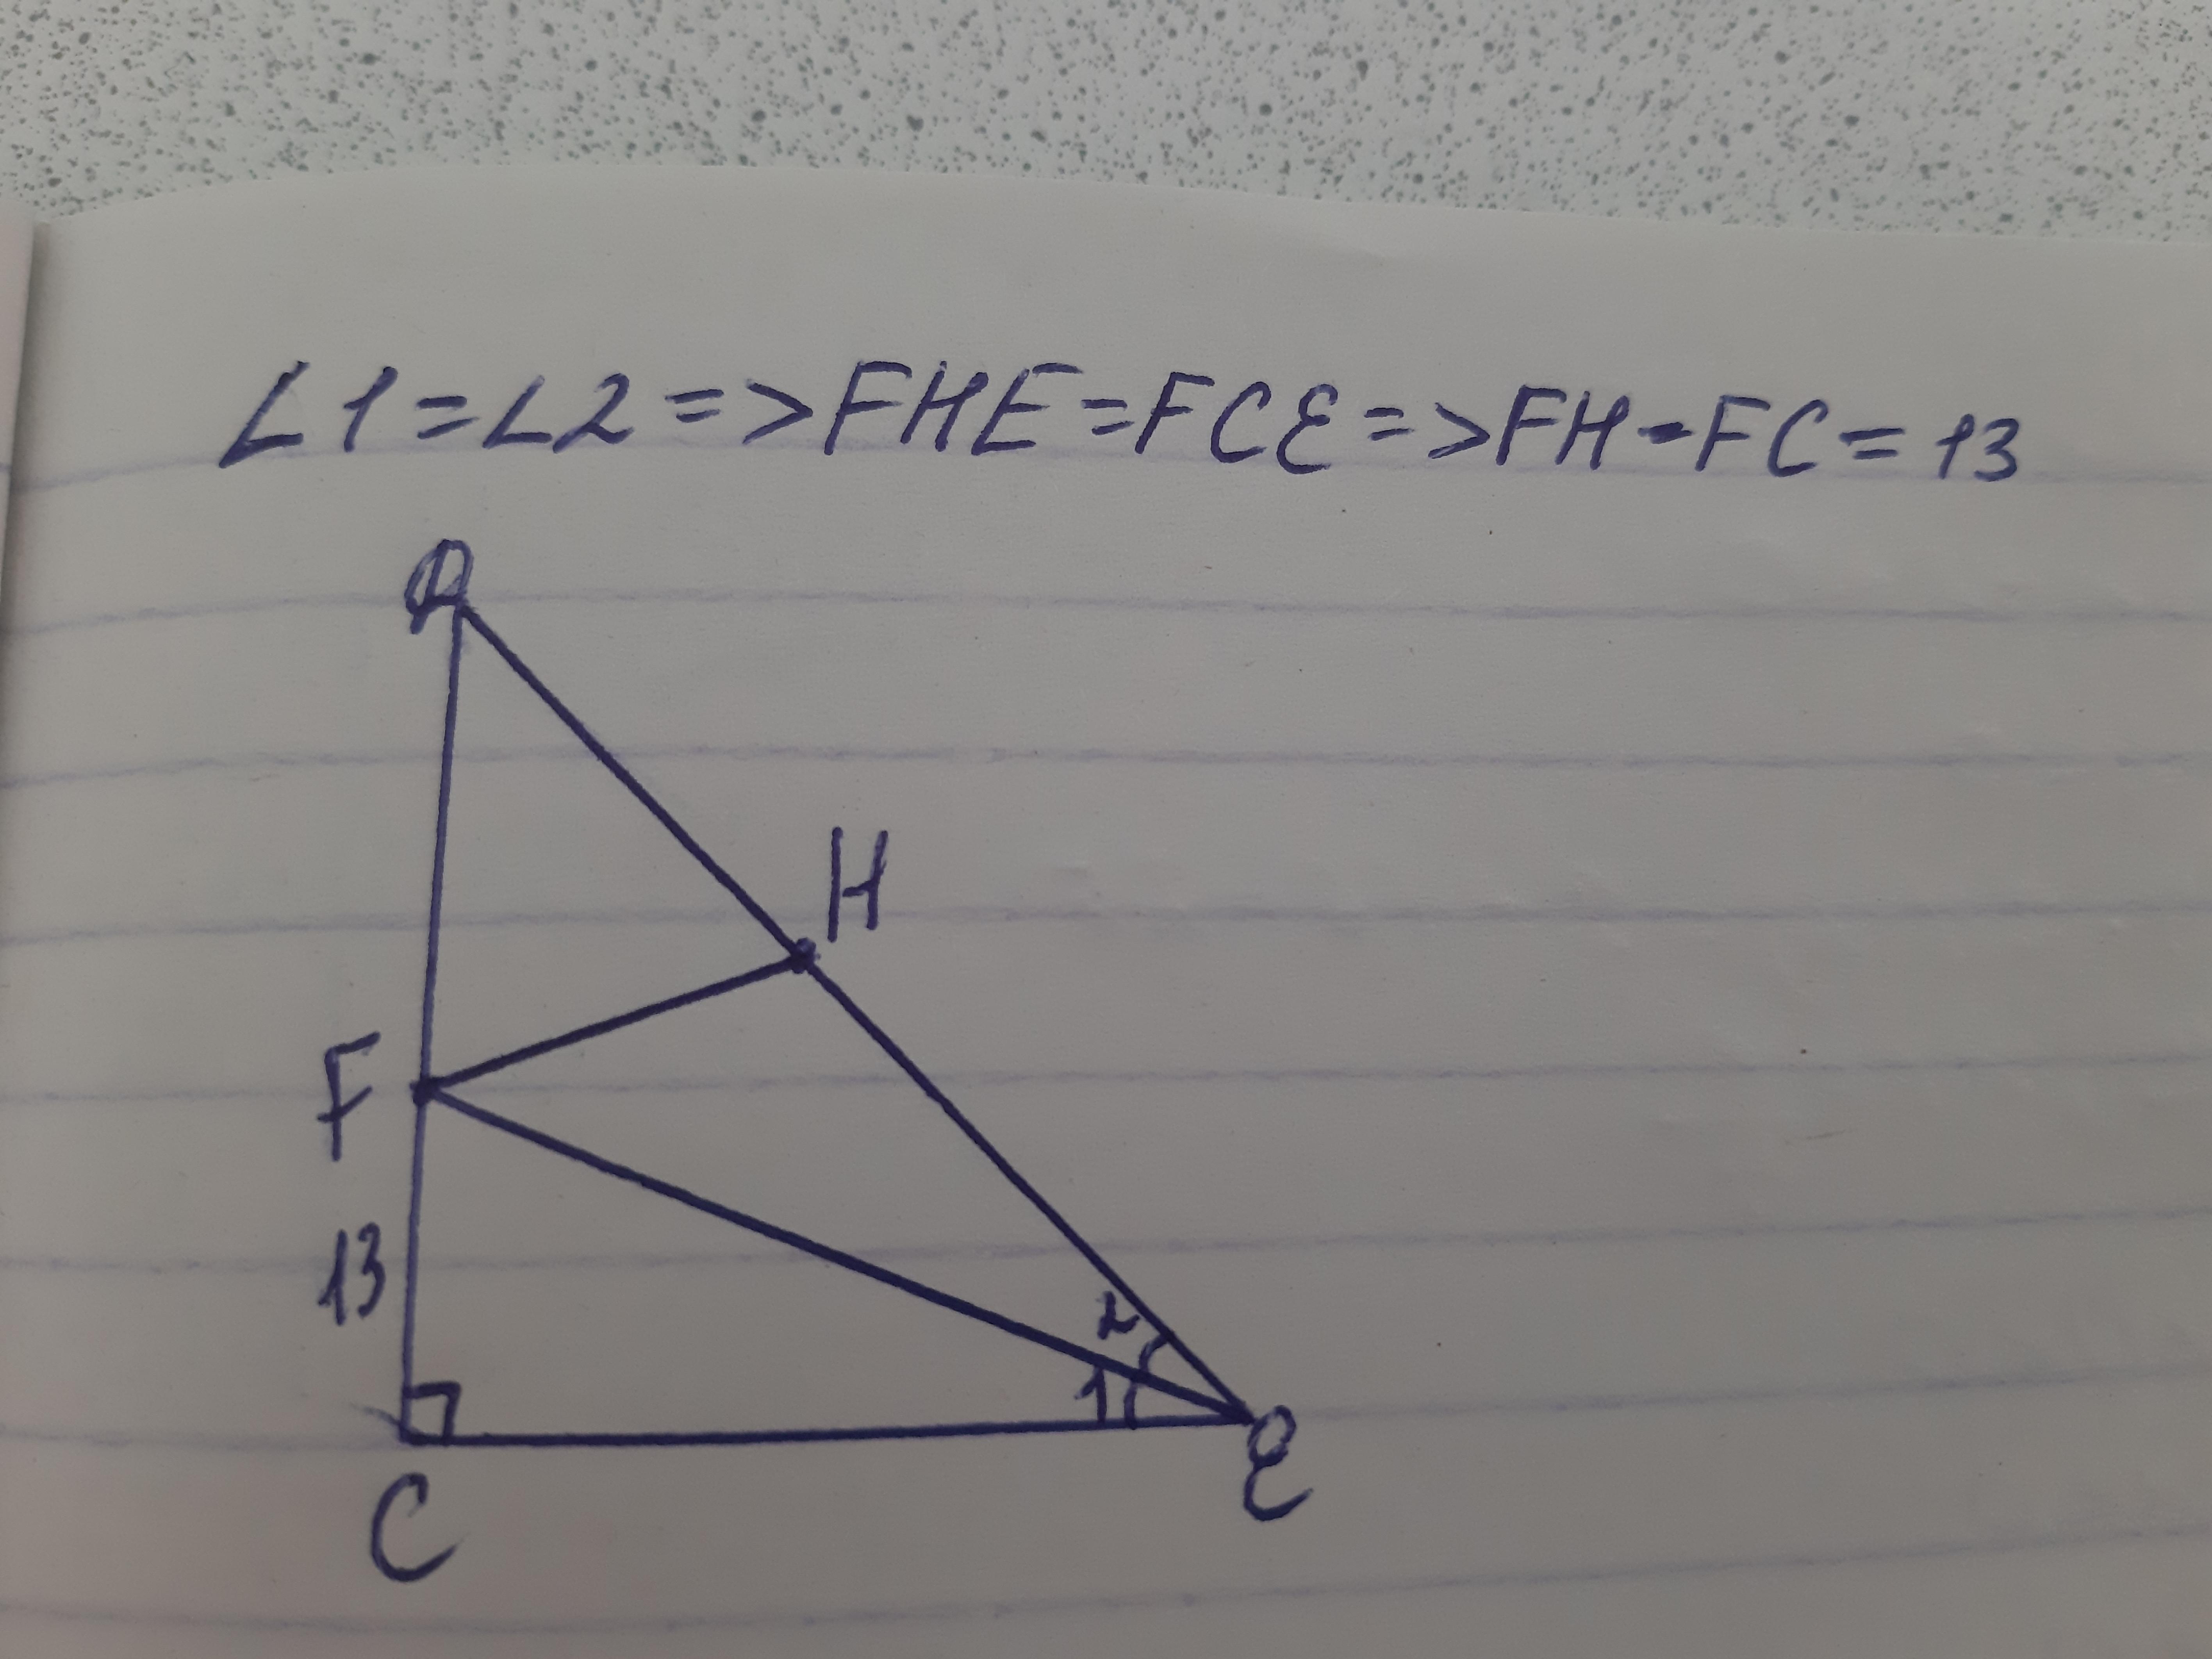 ∠1=∠2=>FHE=FCE=>FH=FC=13
D
H
F
13
2
1
C
E